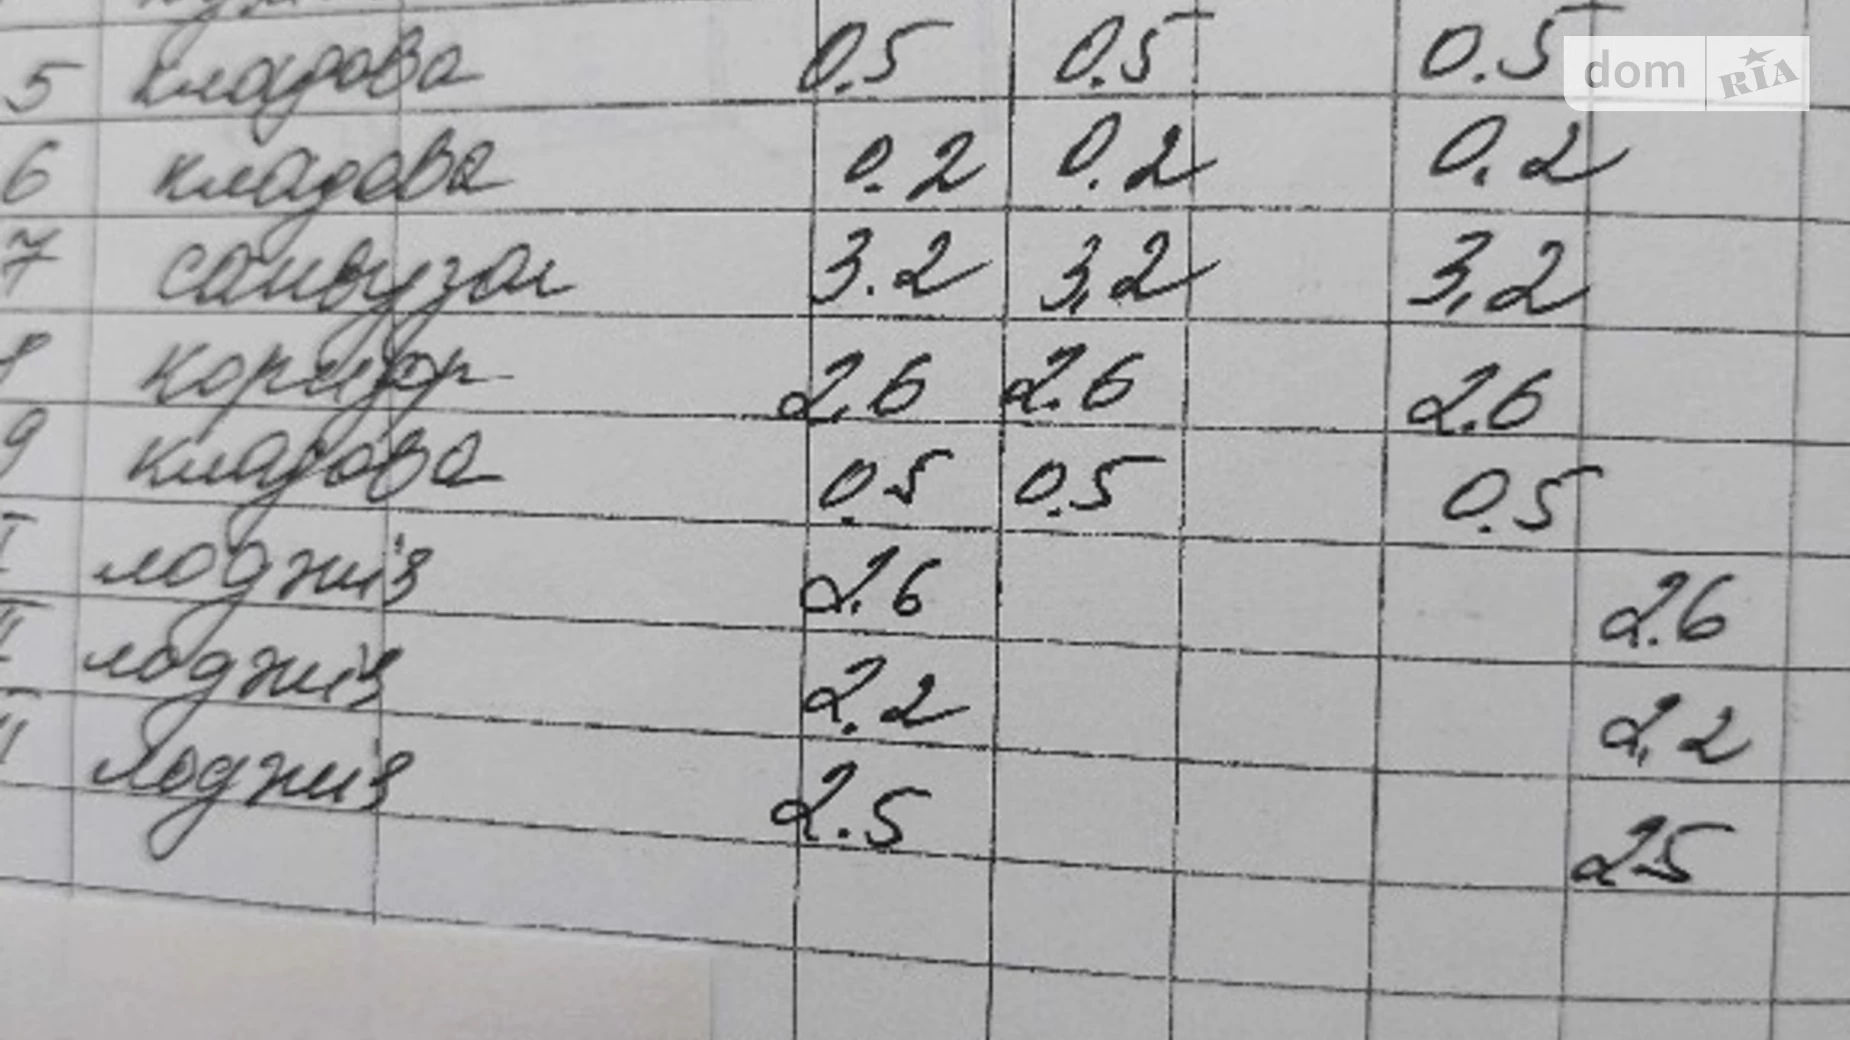 5 кладова 0.5 0.5 0.5
dom RIA
6 кладова 0.2 0.2 0.2
7 санвузол 3.2 3,2 3,2
8 коридор 2.6 2.6 2.6
9 кладова 0.5 0.5 0.5
I лоджія 2.6 2.6
II лоджія 2.2 2.2
лоджія 2.5 2.5